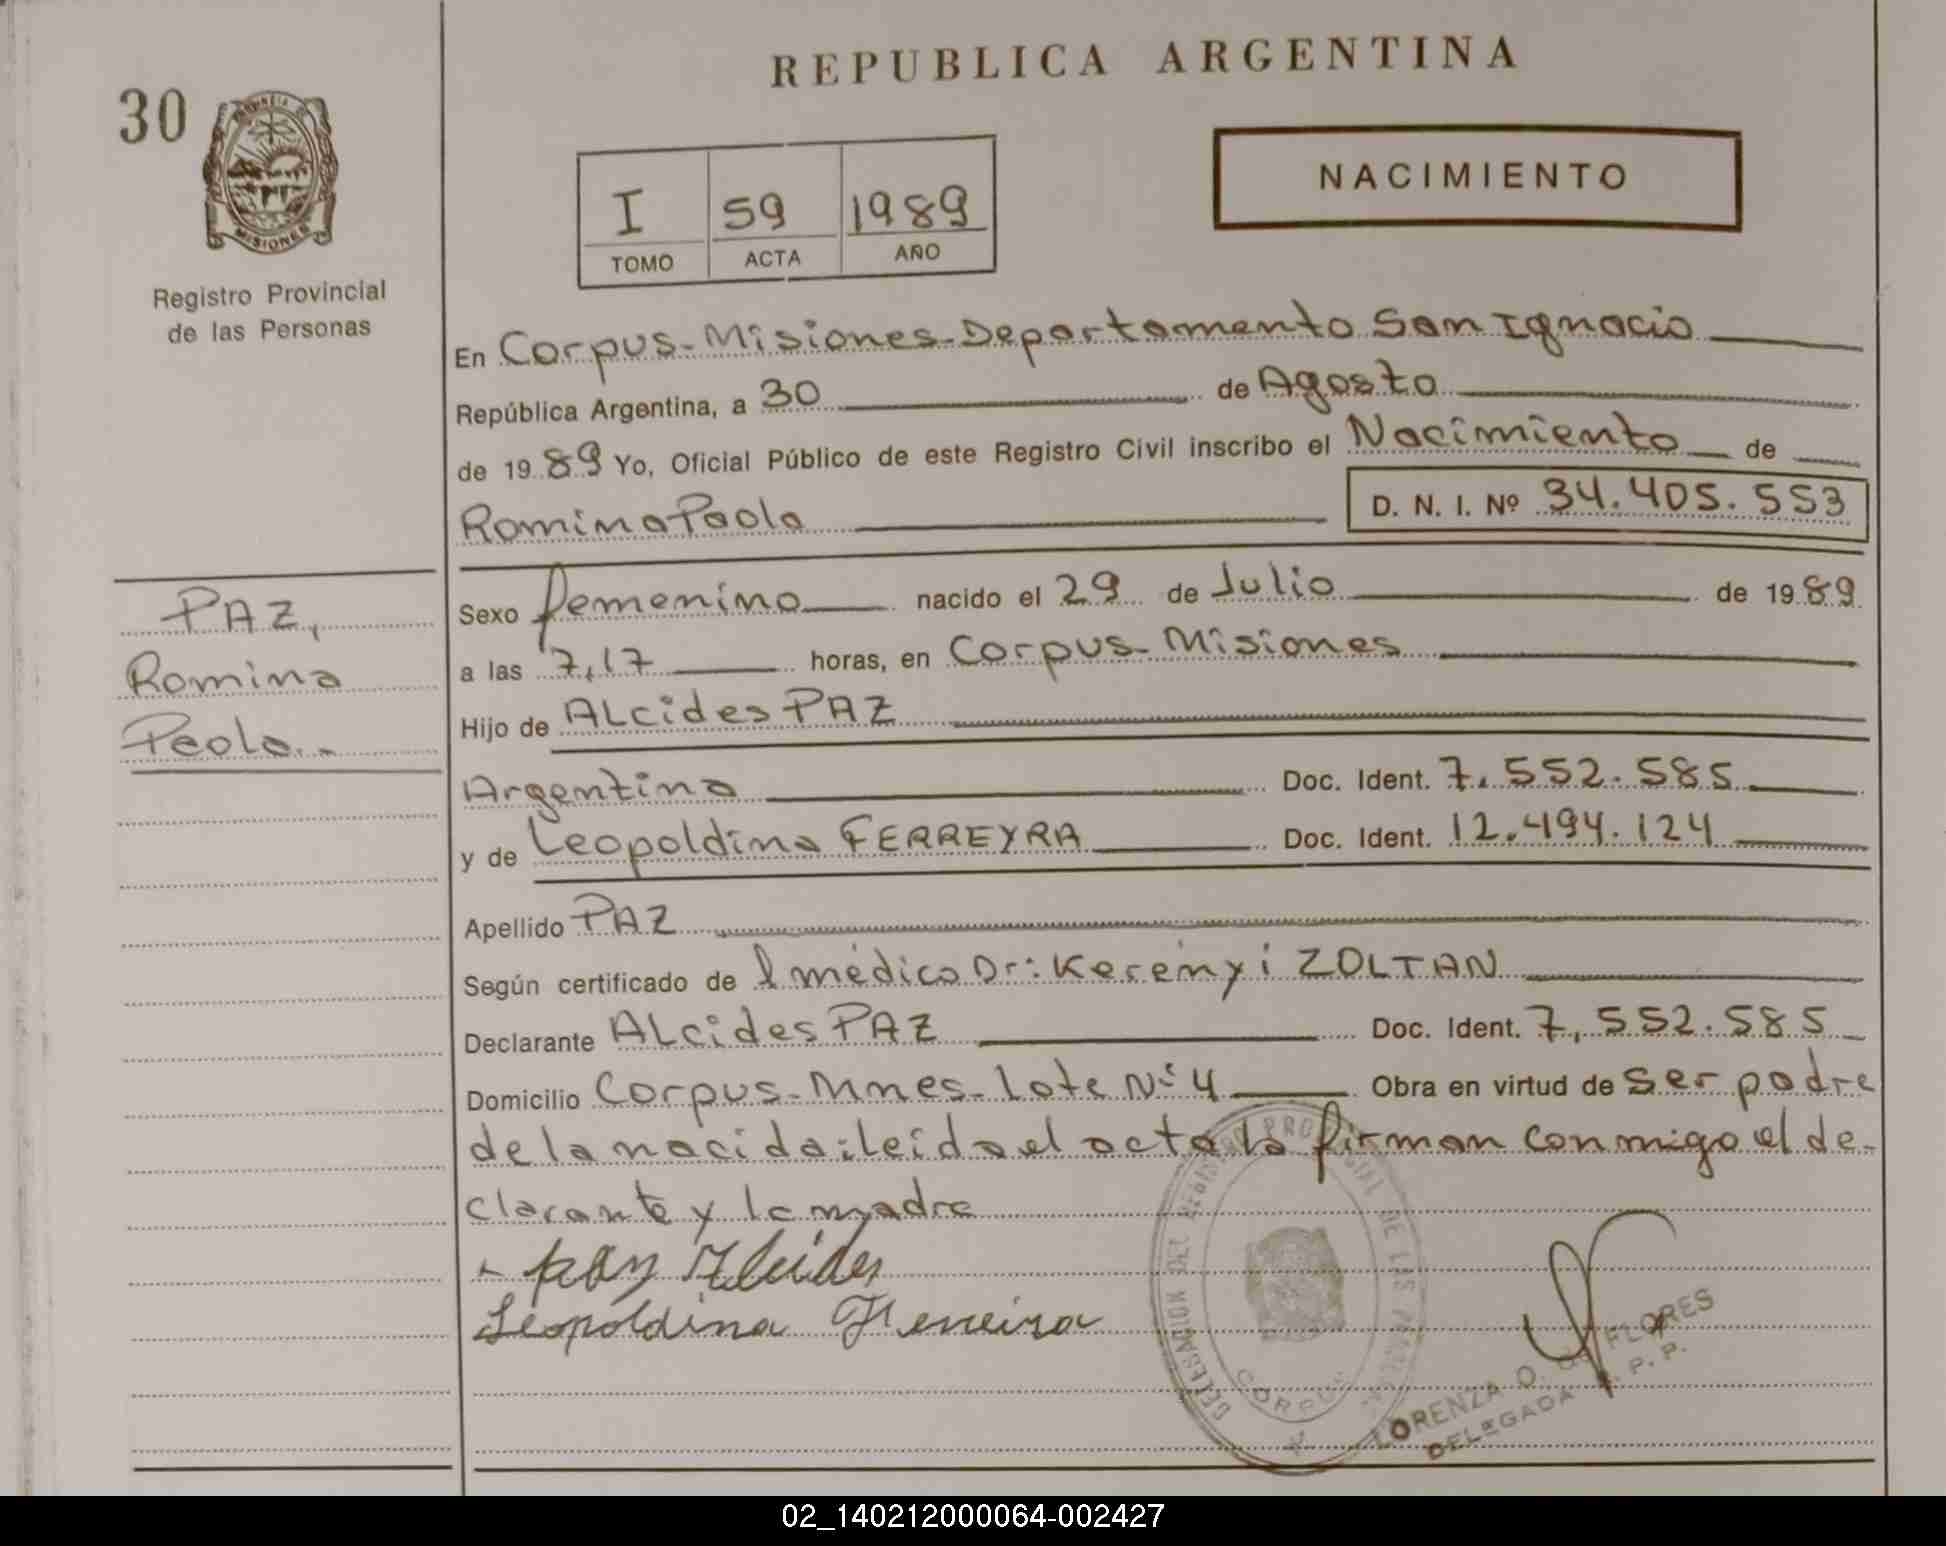 REPUBLICA ARGENTINA
30
NACIMIENTO
I 59 1989
TOMO ACTA AÑO
PROVINCIA DE
MISIONES
Registro Provincial
de las Personas
En Corpus-Misiones-Departamento San Ignacio
República Argentina, a 30 de Agosto
de 1989 Yo, Oficial Público de este Registro Civil inscribo el Nacimiento de
Romina Paola D. N. I. Nº 34.405.553
PAZ,
Romina
Paola.-
Sexo femenino nacido el 29 de Julio de 1989
a las 7,17 horas, en Corpus-Misiones
Hijo de ALcides PAZ
Argentina Doc. Ident. 7.552.585
y de Leopoldina FERREYRA Doc. Ident. 12.494.124
Apellido PAZ
Según certificado de l médico Dr: Kerényi ZOLTAN
Declarante ALcides PAZ Doc. Ident. 7,552.585
Domicilio Corpus-Mnes-Lote Nº 4 Obra en virtud de ser padre
de la nacida: leída el acta la firman conmigo el de-
clarante y la madre
- paz Alcides
Leopoldina Ferreira
DELEGACION DEL REGISTRO PROVINCIAL DE LAS PERSONAS
CORPUS
LORENZA O. DE FLORES
DELEGADA R. P. P.
02_140212000064-002427